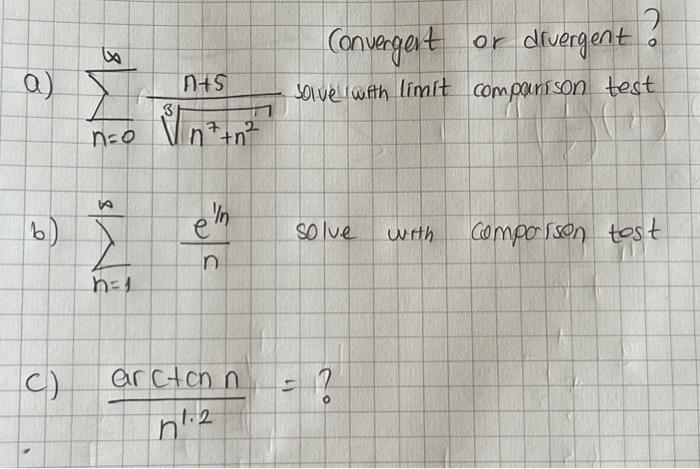 Convergent or divergent ?
a) ∞ ∑ n=0 n+5 / ∛(n⁷+n²) solve with limit comparison test
b) ∞ ∑ n=1 e^1/n / n solve with comparison test
c) arctan n / n^1.2 = ?